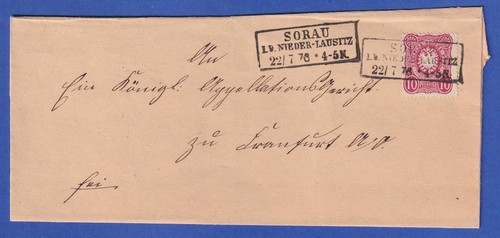 SORAU
I. D. NIEDER-LAUSITZ
22/7 76 * 4-5N.
SO
I. D. NIEDER-LAUSITZ
22/7 76 * 4-5N.
10 10
An
Ein Königl. Appellations Gericht
zu Frankfurt a/O.
frei